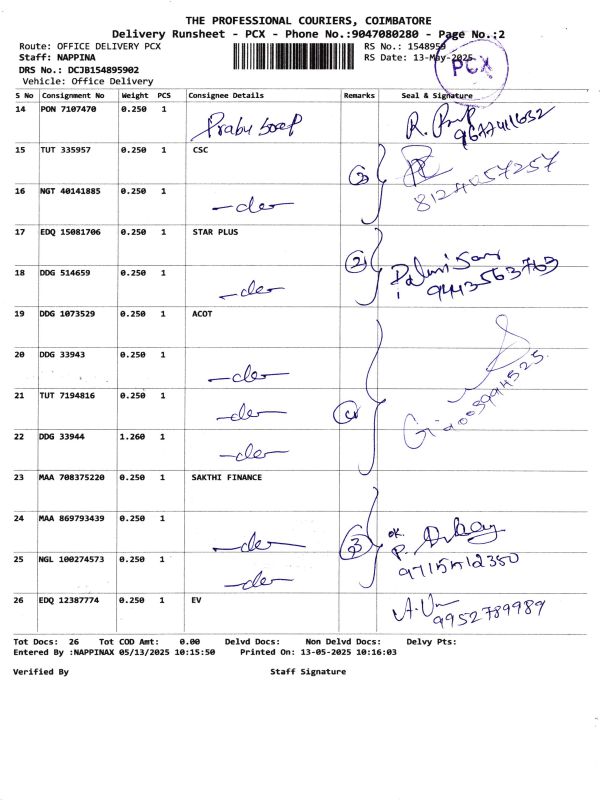 THE PROFESSIONAL COURIERS, COIMBATORE
Delivery Runsheet - PCX - Phone No.:9047080280 - Page No.:2
Route: OFFICE DELIVERY PCX RS No.: 1548959
Staff: NAPPINA RS Date: 13-May-2025
PCX
DRS No.: DCJB154895902
Vehicle: Office Delivery
S No Consignment No Weight PCS Consignee Details Remarks Seal & Signature
14 PON 7107470 0.250 1 Prabu R. 9677411652
15 TUT 335957 0.250 1 CSC
16 NGT 40141885 0.250 1 -do- 8124057257
17 EDQ 15081706 0.250 1 STAR PLUS
18 DDG 514659 0.250 1 -do- 2 9443563763
19 DDG 1073529 0.250 1 ACOT
20 DDG 33943 0.250 1 -do-
21 TUT 7194816 0.250 1 -do-
22 DDG 33944 1.260 1 -do-
23 MAA 708375220 0.250 1 SAKTHI FINANCE
24 MAA 869793439 0.250 1 -do- 3 P.
25 NGL 100274573 0.250 1 -do-
26 EDQ 12387774 0.250 1 EV 9952789989
Tot Docs: 26 Tot COD Amt: 0.00 Delvd Docs: Non Delvd Docs: Delvy Pts:
Entered By :NAPPINAX 05/13/2025 10:15:50 Printed On: 13-05-2025 10:16:03
Verified By Staff Signature